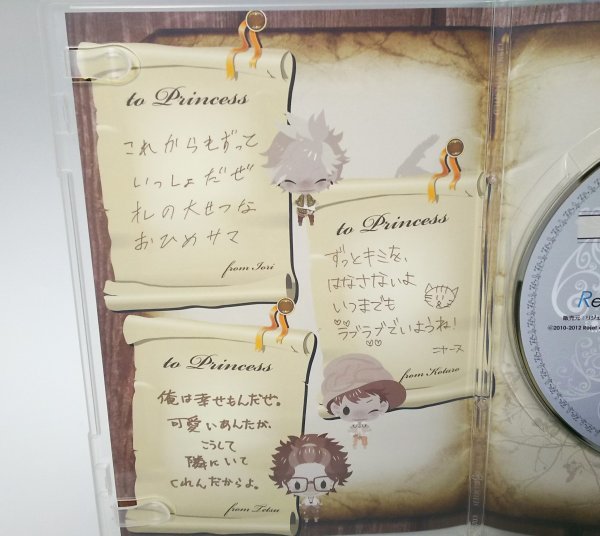 to Princess
これからもずって
いっしょだぜ
オレの大せつな
おひめサマ
from Iori
to Princess
ずっとキミを、
はなさないよ
いつまでも
ラブラブでいようね!
ニャース
from Kotaro
to Princess
俺は幸せもんだぜ。
可愛いあんたが、
こうして
隣にいて
くれんだからよ。
from Tetsu
Re
©2010-2012 Rejet